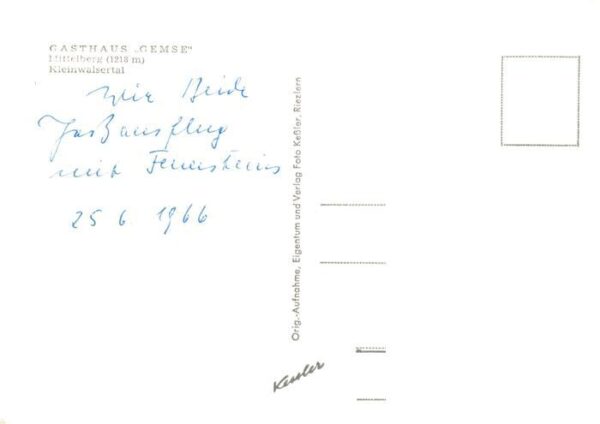 GASTHAUS „GEMSE"
Mittelberg (1218 m)
Kleinwalsertal
Wir Beide
Paßausflug
mit Feuersteins
25 6 1966
Orig.-Aufnahme, Eigentum und Verlag Foto Keßler, Riezlern
Kessler